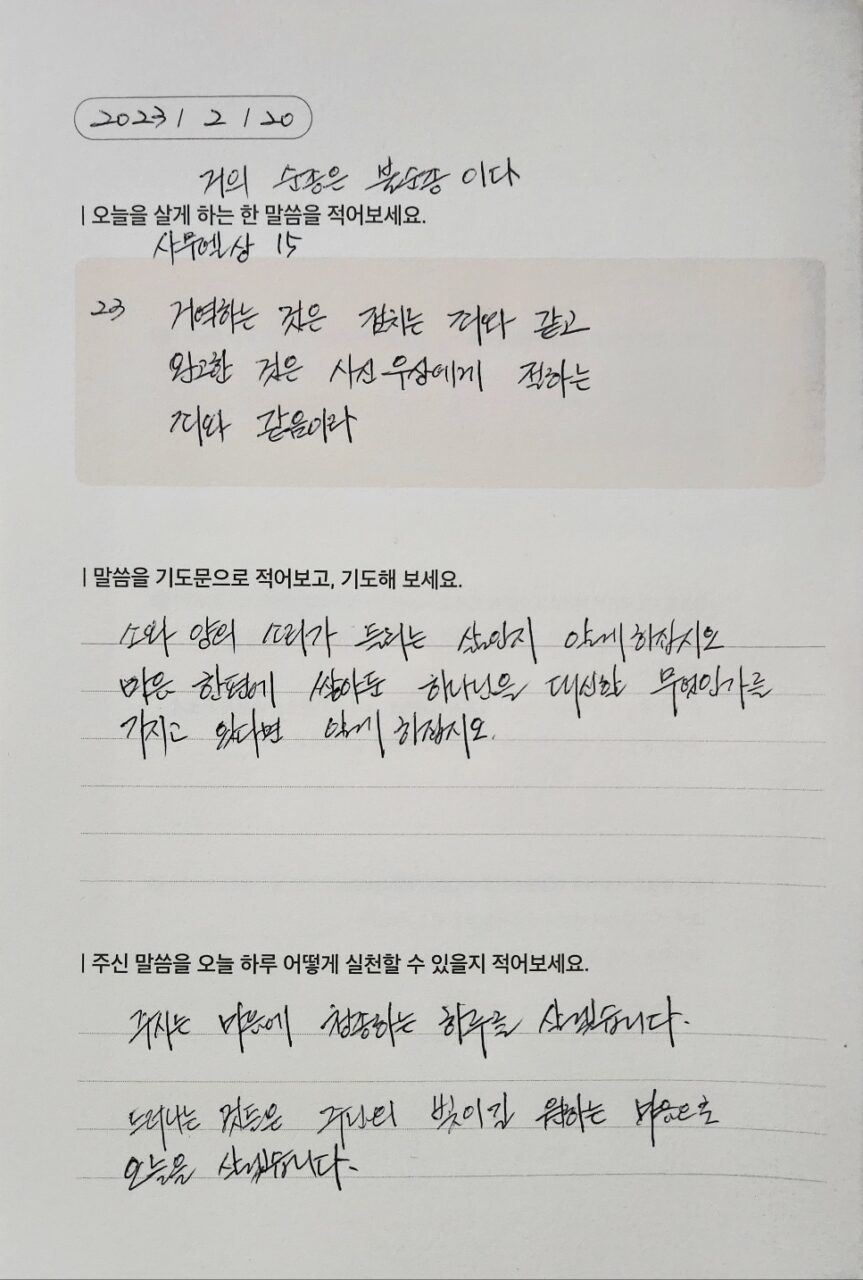 2023 / 2 / 20
거의 순종은 불순종 이다
| 오늘을 살게 하는 한 말씀을 적어보세요.
사무엘상 15
23 거역하는 것은 점치는 죄와 같고
완고한 것은 사신 우상에게 절하는
죄와 같음이라
| 말씀을 기도문으로 적어보고, 기도해 보세요.
소와 양의 소리가 들리는 삶인지 알게 하십시오
마음 한편에 쌓아둔 하나님을 대신할 무엇인가를
가지고 있다면 알게 하십시오.
| 주신 말씀을 오늘 하루 어떻게 실천할 수 있을지 적어보세요.
주시는 마음에 청종하는 하루를 살겠습니다.
드러나는 것들은 주님의 빛이길 원하는 마음으로
오늘을 살겠습니다.